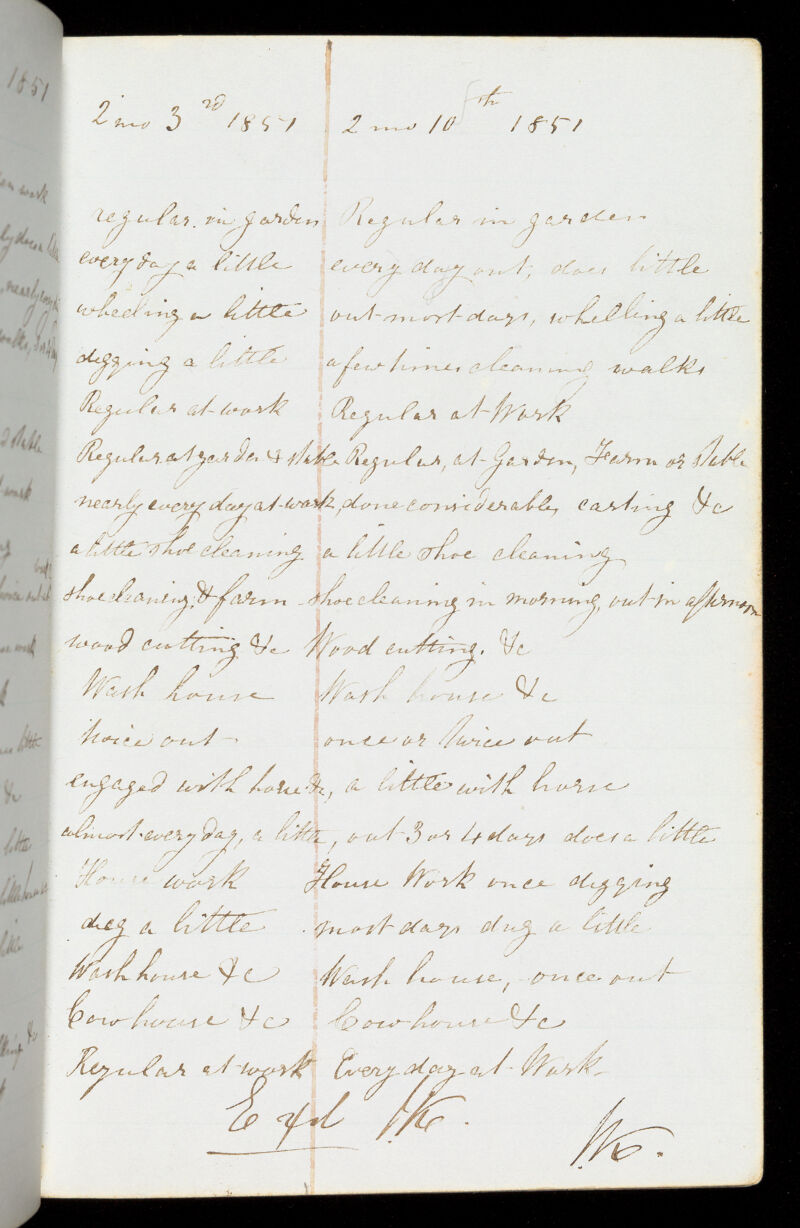 2 mo 3rd 1851
regular in garden
every day a little
wheeling a little
digging a little
Regular at work
Regular at garden & stable
nearly every day at work
a little shoe cleaning
shoe cleaning & farm
wood cutting &c
Wash house
twice out
engaged with horse &c,
almost every day, a little,
House work
dug a little
Wash house &c
Cow house &c
Regular at work
2 mo 10th 1851
Regular in garden
every day out, does little
out most days, whelling a little
a few times cleaning walks
Regular at Work
Regular, at Garden, Farm or stable
done considerable, carting &c
a little shoe cleaning
shoe cleaning in morning, out in afternoon
Wood cutting. &c
Wash house &c
once or twice out
a little with horse
out 3 or 4 days does a little
House Work once digging
most days dug a little
Wash house, once out
Cow house &c
Every day at Work
Exd
1851